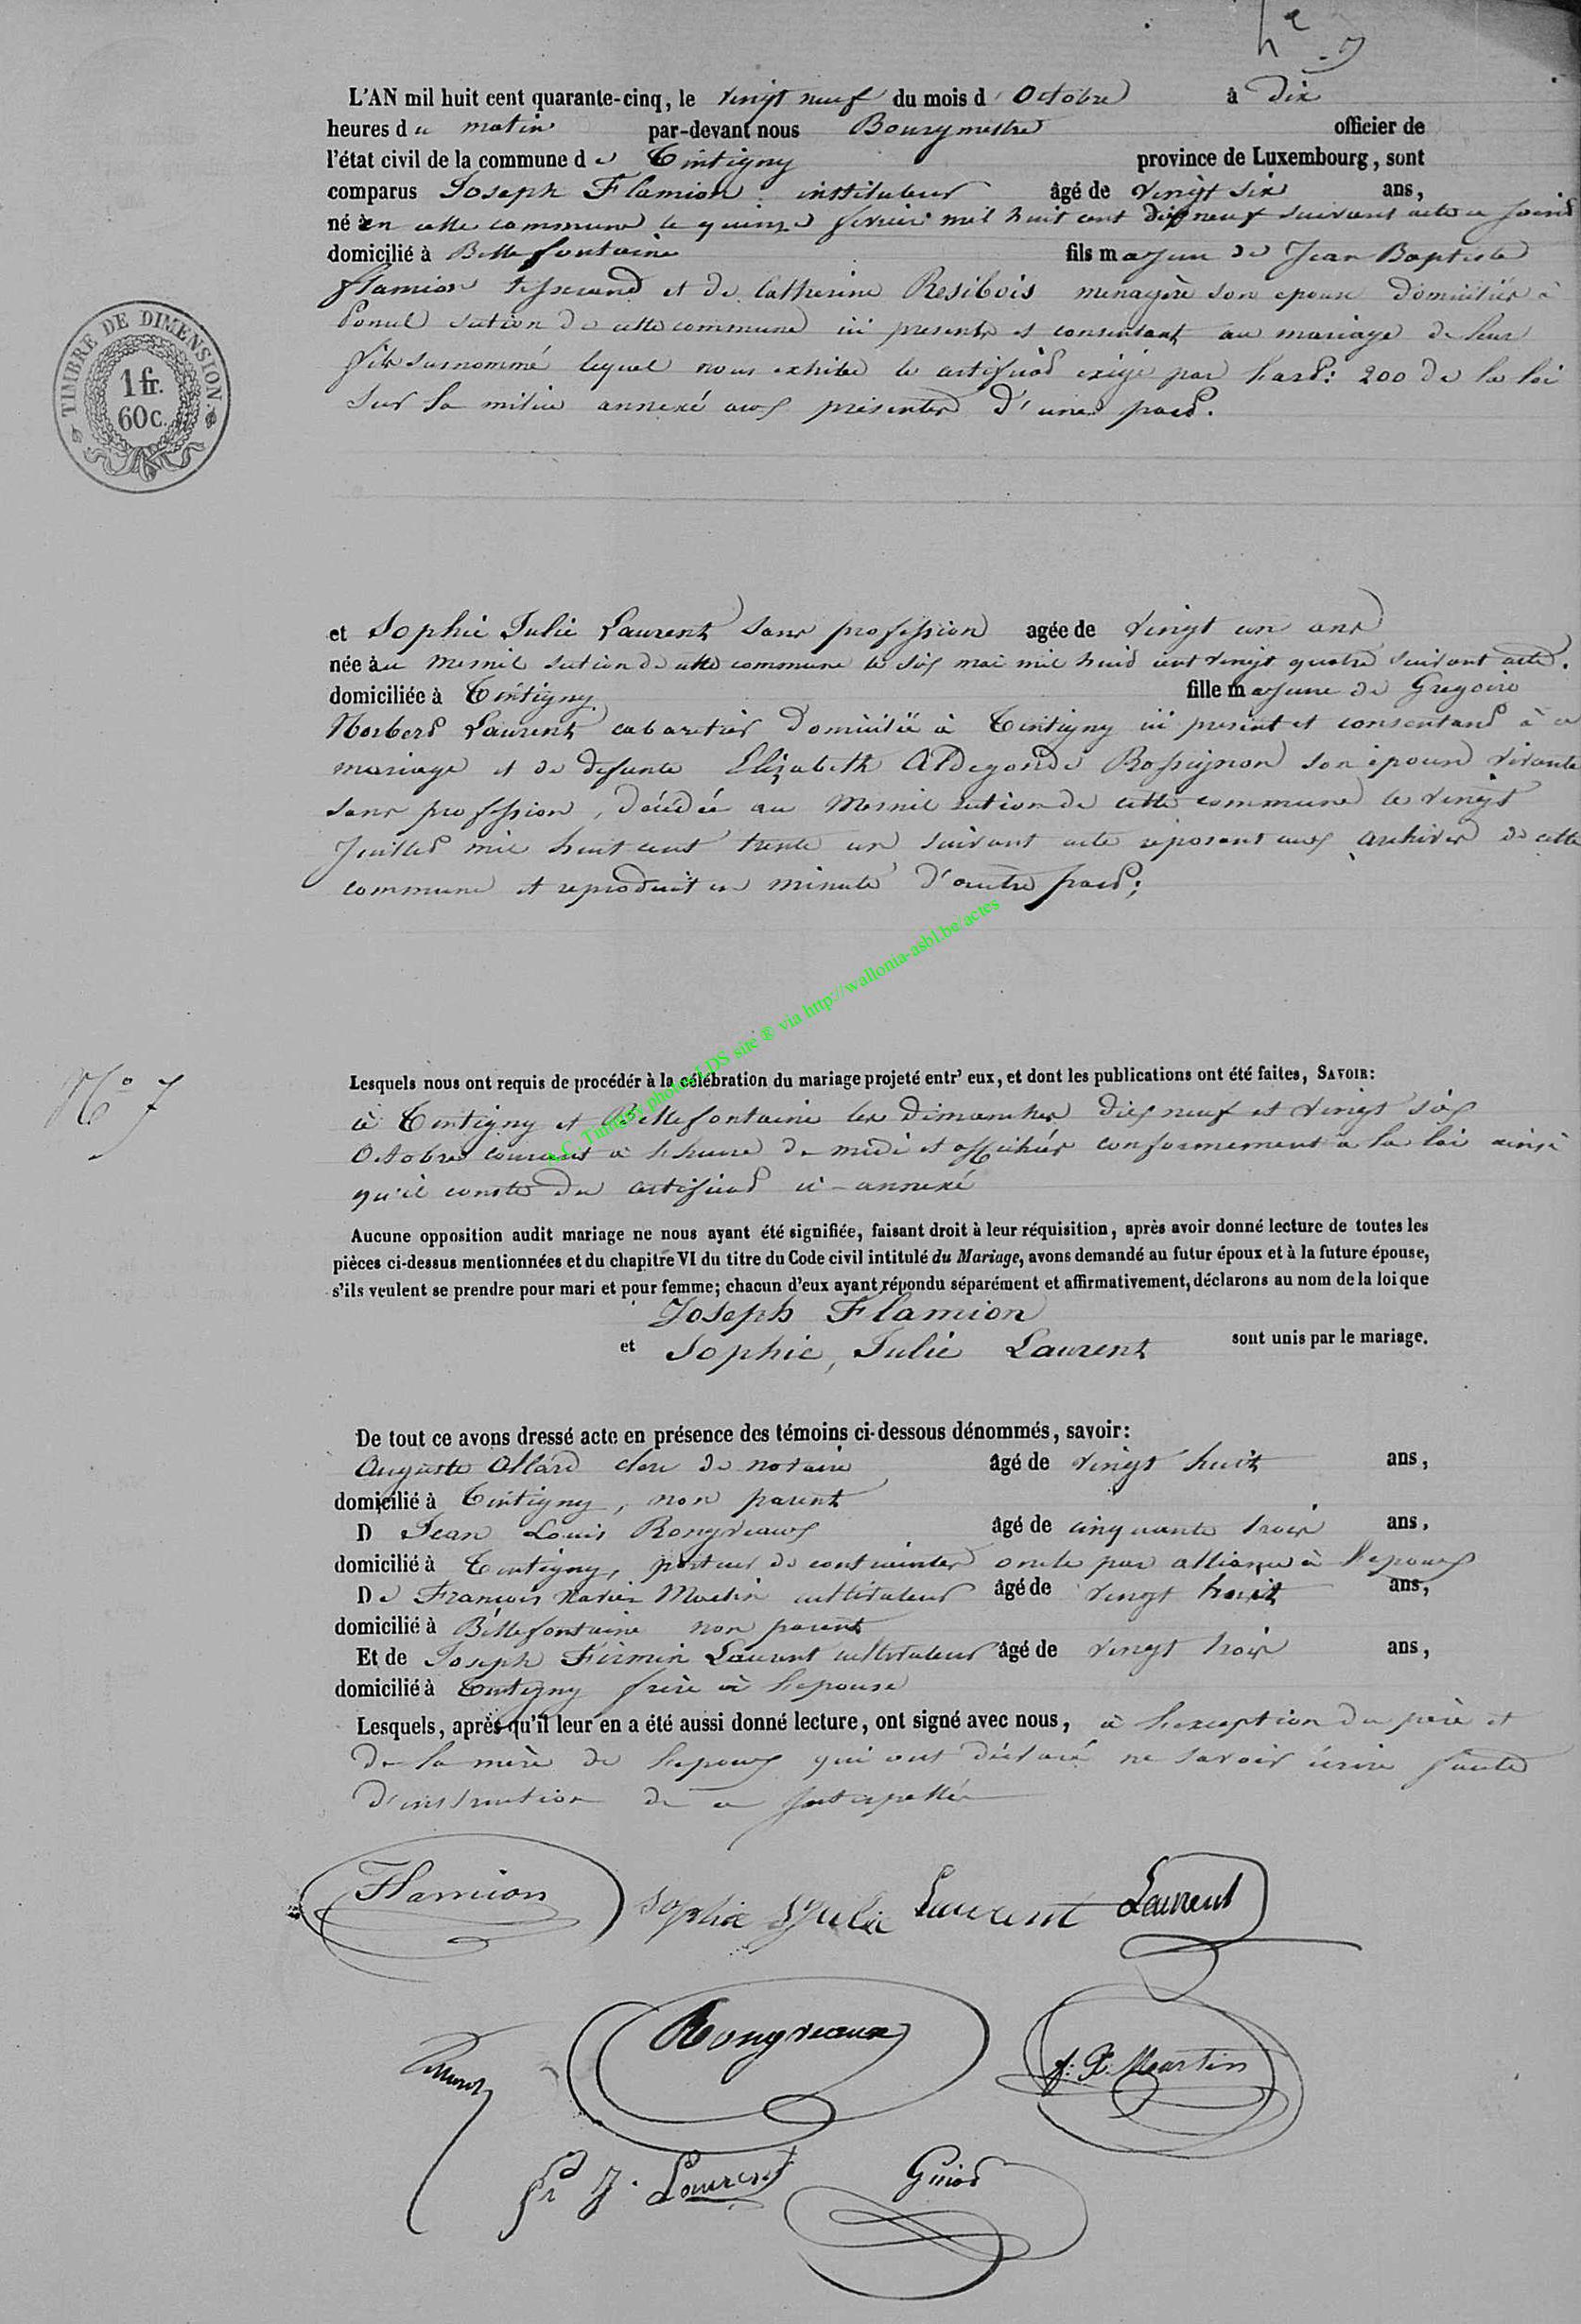 L'AN mil huit cent quarante-cinq, le vingt neuf du mois d'Octobre à dix
heures du matin par-devant nous Bourgmestre officier de
l'état civil de la commune de Tintigny province de Luxembourg, sont
comparus Joseph Flamion instituteur âgé de vingt six ans,
né en cette commune le quinze fevrier mil huit cent dix neuf suivant acte ci joint
domicilié à Bellefontaine fils majeur de Jean Baptiste
flamion tisserand et de Catherine Resibois menagère son epouse domiciliés à
Ponul section de cette commune ici presents et consentant au mariage de leur
fils surnommé lequel nous exhibe le certificat exigé par l'art: 200 de la loi
sur la milice annexé aux présentes d'une part.
TIMBRE DE DIMENSION.
1 fr.
60c.
et Sophie Julie Laurent sans profession agée de vingt un ans
née au Mesnil section de cette commune le six mai mil huit cent vingt quatre suivant acte.
domiciliée à Tintigny fille majeure de Gregoire
Norbert Laurent cabaretier domicilié à Tintigny ici present et consentant à ce
mariage et de defunte Elizabeth Aldegonde Rossignon son épouse vivante
sans profession, décédée au Mesnil section de cette commune le vingt
Juillet mil huit cent trente un suivant acte reposant aux archives de cette
commune et reproduit en minute d'autre part;
N° 7
Lesquels nous ont requis de procédér à la célébration du mariage projeté entr' eux, et dont les publications ont été faites, SAVOIR:
à Tintigny et Bellefontaine les Dimanches dix neuf et vingt six
Octobre courant à l'heure de midi et affichées conformement à la loi ainsi
qu'il conste du certificat ci-annexé
Aucune opposition audit mariage ne nous ayant été signifiée, faisant droit à leur réquisition, après avoir donné lecture de toutes les
pièces ci-dessus mentionnées et du chapitre VI du titre du Code civil intitulé du Mariage, avons demandé au futur époux et à la future épouse,
s'ils veulent se prendre pour mari et pour femme; chacun d'eux ayant répondu séparément et affirmativement, déclarons au nom de la loi que
Joseph Flamion
et Sophie, Julie Laurent sont unis par le mariage.
De tout ce avons dressé acte en présence des témoins ci-dessous dénommés, savoir:
Auguste Allard clerc de notaire âgé de vingt huit ans,
domicilié à Tintigny, non parent
D Jean Louis Rongveaux âgé de cinquante trois ans,
domicilié à Tintigny, porteur de contraintes oncle par alliance à l'epoux
De François Xavier Martin cultivateur âgé de vingt huit ans,
domicilié à Bellefontaine non parent
Et de Joseph Firmin Laurent cultivateur âgé de vingt trois ans,
domicilié à Tintigny frère à l'epouse
Lesquels, après qu'il leur en a été aussi donné lecture, ont signé avec nous, à l'exception du père et
de la mère de l'epoux qui ont déclaré ne savoir écrire faute
d'instruction de ce Interpellés
Flamion Sophie Julie Laurent Laurent
Rongveaux f: X: Martin
J. Laurent
A.C. Tintigny photos LDS site ® via http://wallonia-asbl.be/actes